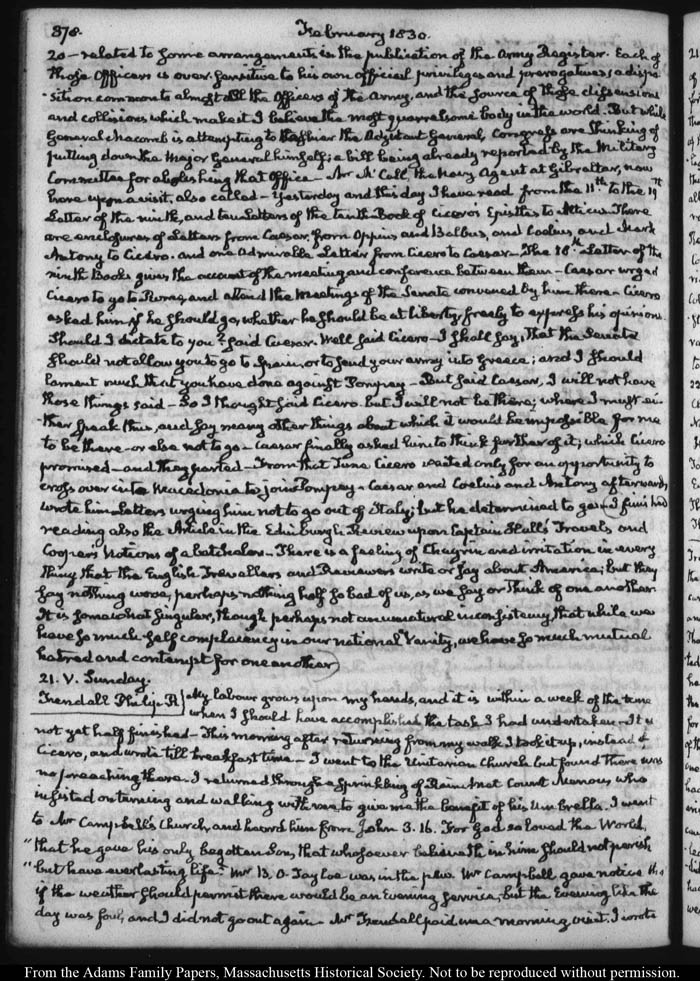 378.
February 1830.
20 — related to some arrangements in the publication of the Army Register. Each of
those Officers is over-sensitive to his own official privileges and prerogatives; a dispo-
-sition common to almost all the Officers of the Army, and the source of those dissensions
and collisions which make it I believe the most quarrelsome body in the world. But while
General Macomb is attempting to the Adjutant General, Congress are thinking of
putting down the Major General himself; a bill being already reported by the Military
Committee for abolishing that Office — Mr McCall the Navy Agent at Gibraltar, now
here upon a visit, also called — Yesterday and this day I have read from the 11th to the 19th
Letter of the ninth, and ten Letters of the tenth Book of Cicero's Epistles to Atticus. There
are enclosures of Letters from Caesar, from Oppius and Balbus, and Coelius and Mark
Antony to Cicero. and one admirable Letter from Cicero to Caesar — The 18th Letter of the
ninth Book gives the account of the meeting and conference between them — Caesar urged
Cicero to go to Rome, and attend the Meetings of the Senate convened by him there — Cicero
asked him, if he should go, whether he should be at liberty freely to express his opinions.
Should I dictate to you? said Caesar. Well said Cicero — I shall say, That the Senate
should not allow you to go to Spain, or to send your army into Greece; and I should
lament much that you have done against Pompey — But said Caesar, I will not have
those things said — So I thought said Cicero. but I will not be there; where I must ei-
-ther speak thus, and say many other things about which it would be impossible for me
to be there — or else not to go — Caesar finally asked him to think further of it; which Cicero
promised — and they parted — From that Time Cicero waited only for an opportunity to
cross over into Macedonia to join Pompey — Caesar and Coelius and Antony afterwards
wrote him Letters urging him not to go out of Italy; but he determined to go — I finished
reading also the Article in the Edinburgh Review upon Captain Hall's Travels and
Coopers Notions of a batchelor — There is a feeling of Chagrin and irritation in every
thing that the English Travellers and Reviewers write or say about America; but they
say nothing worse, perhaps nothing half so bad of us, as we say or think of one another
It is somewhat singular, though perhaps not an unnatural inconsistency, that while we
have so much self complacency in our national Vanity, we have so much mutual
hatred and contempt for one another)
21. V. Sunday.
Frendall Philip R} My labour grows upon my hands, and it is within a week of the time
when I should have accomplished the task I had undertaken — It is
not yet half finished — This morning after returning from my walk I took it up, instead of
Cicero, and wrote till breakfast time — I went to the Unitarian Church but found there was
no preaching there. I returned through a sprinkling of Rain & met Count Menou, who
insisted on turning and walking with me, to give me the benefit of his Umbrella. I went
to Mr Campbell's Church, and heard him from John 3. 16. "For God so loved the World,
"that he gave his only begotten Son, that whosoever believeth in him should not perish
"but have everlasting life." Mr B. O. Tayloe was in the pew. Mr Campbell gave notice that
if the weather should permit there would be an Evening service, but the Evening like the
day was foul, and I did not go out again — Mr Frendall paid me a morning visit. I wrote
From the Adams Family Papers, Massachusetts Historical Society. Not to be reproduced without permission.